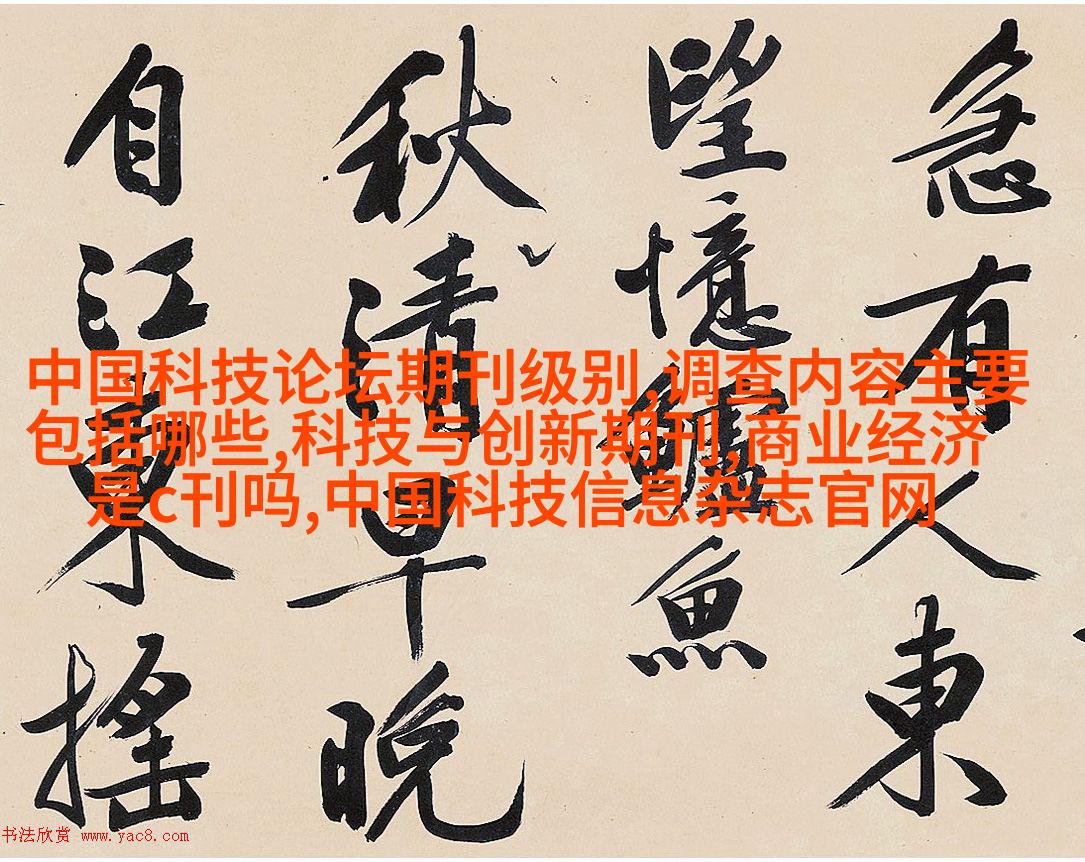 急有人東
望憶鱸魚
秋清早晚
自江東搖
中国科技论坛期刊级别,调查内容主要
包括哪些,科技与创新期刊,商业经济
是c刊吗,中国科技信息杂志官网
书法欣赏 www.yac8.com